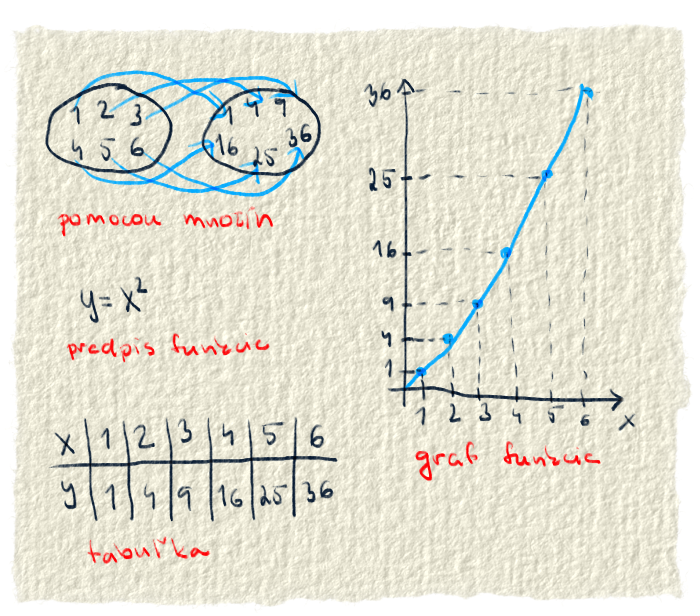 1 2 3
4 5 6
1 4 9
16 25 36
pomocou množín
y = x²
predpis funkcie
x 1 2 3 4 5 6
y 1 4 9 16 25 36
tabuľka
36
25
16
9
4
1
1 2 3 4 5 6 x
graf funkcie